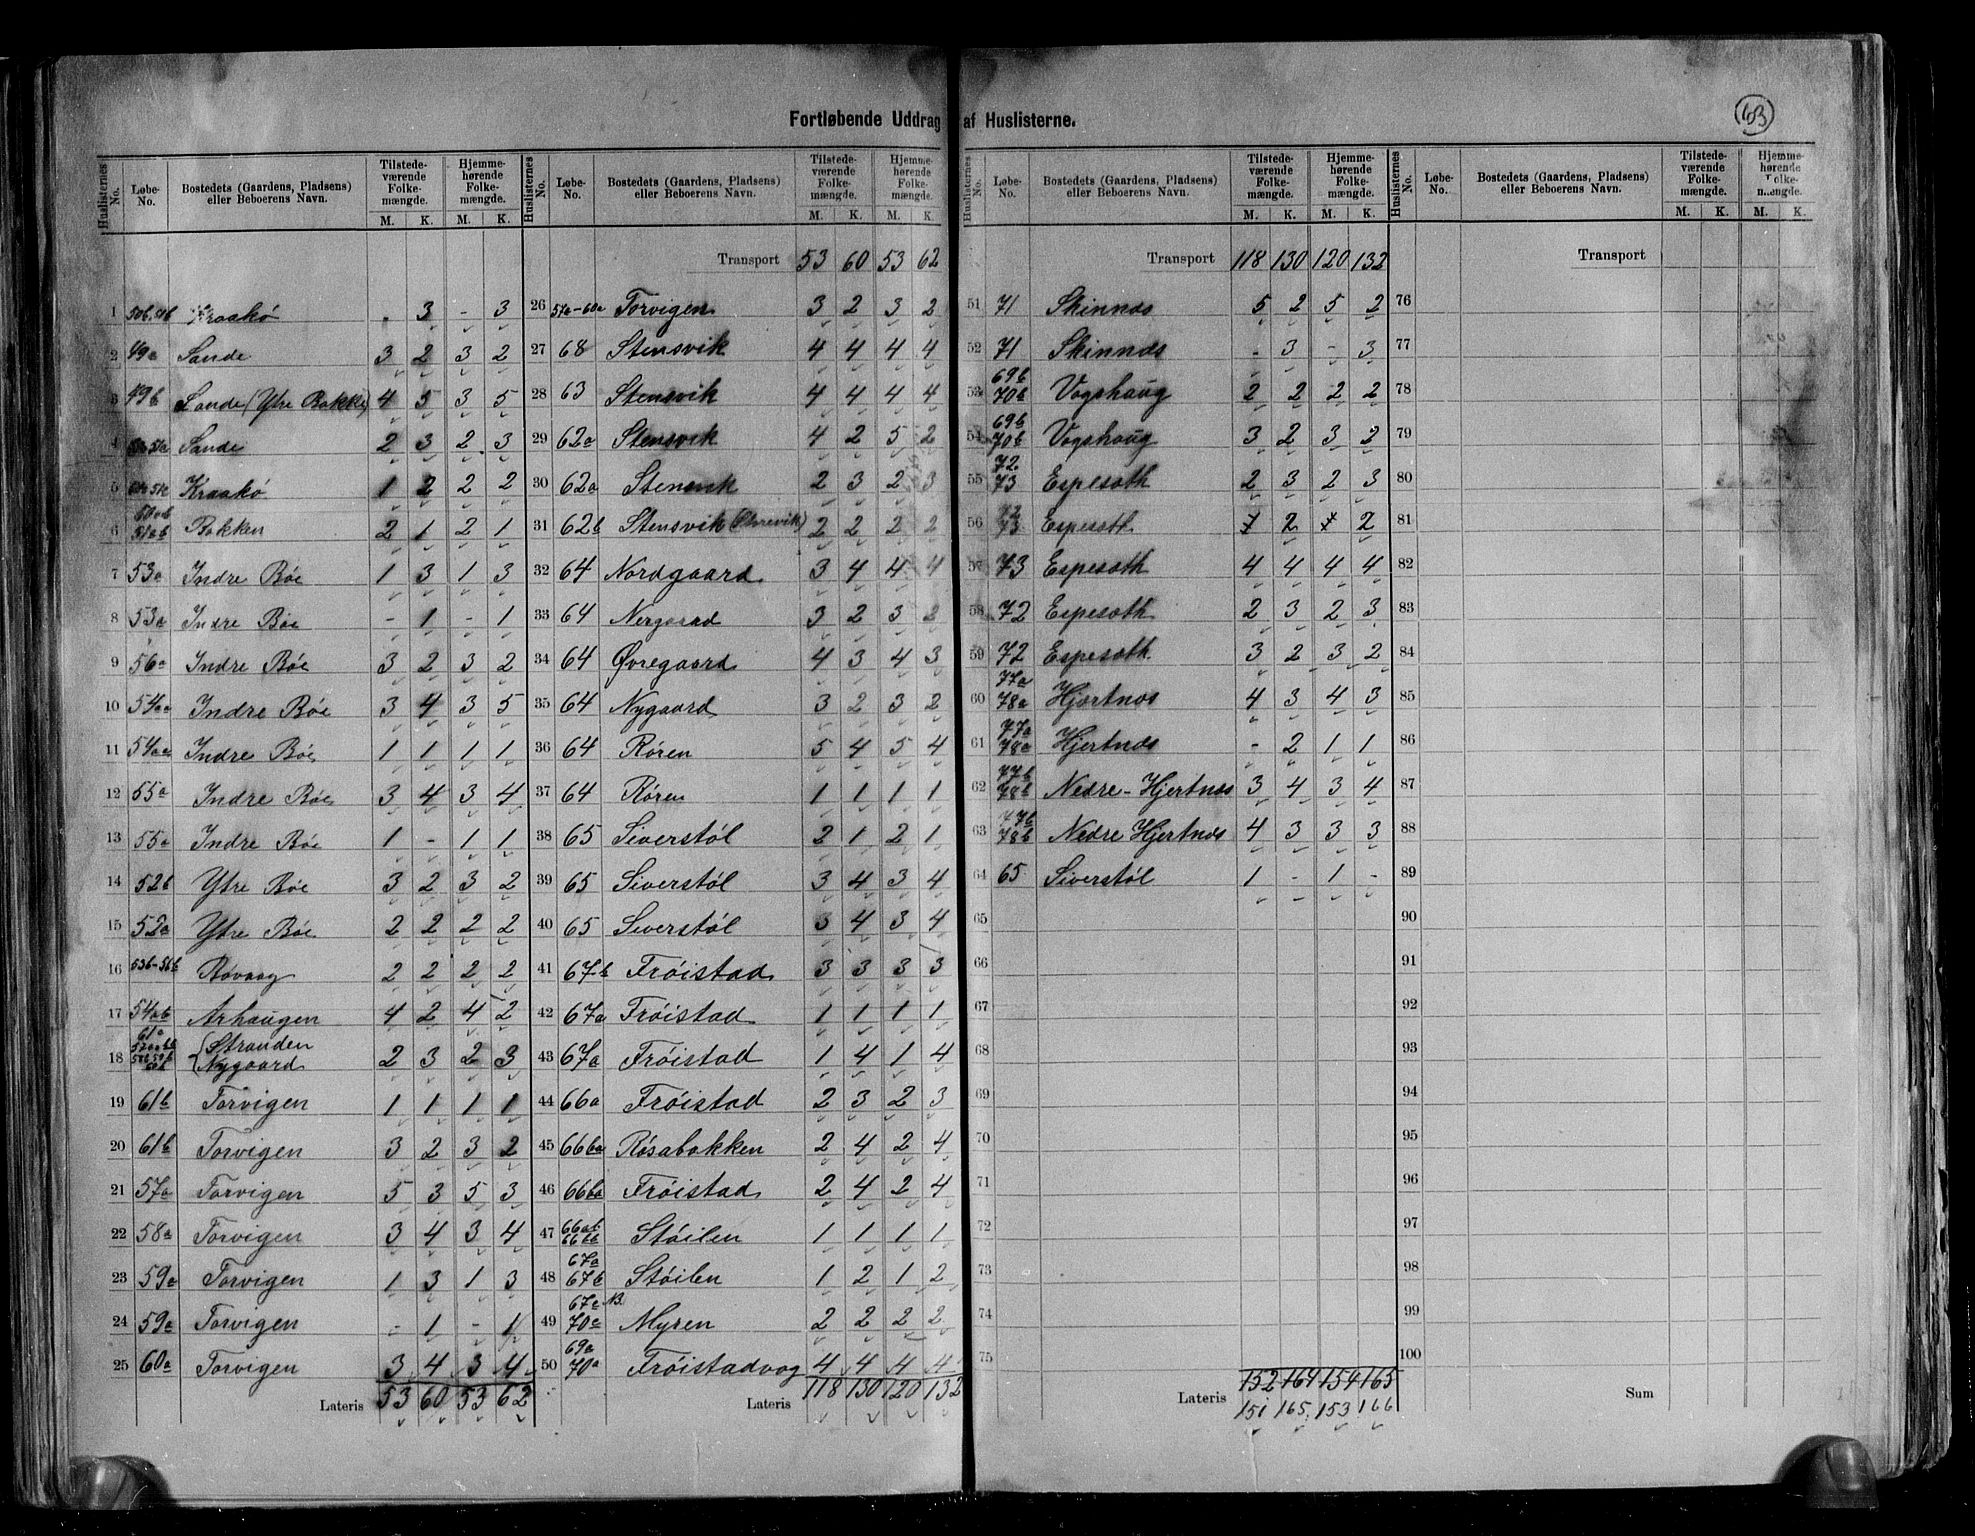 Fortløbende Uddrag af Huslisterne.
63
Huslisternes No. | Løbe-No. | Bostedets (Gaardens, Pladsens) eller Beboerens Navn. | Tilstedeværende Folkemængde. M. K. | Hjemmehørende Folkemængde. M. K.
1 Kraakø . 3 - 3
2 49a Sande 3 2 3 2
3 49b Sande (Ytre Bakke) 4 5 3 5
4 Sande 2 3 2 3
5 Kraakø 1 2 2 2
6 Bakken 2 1 2 1
7 53a Indre Böe 1 3 1 3
8 53a Indre Böe - 1 - 1
9 56a Indre Böe 3 2 3 2
10 54aa Indre Böe 3 4 3 5
11 54aa Indre Böe 1 1 1 1
12 55a Indre Böe 3 4 3 4
13 55a Indre Böe 1 - 1 1
14 52b Ytre Böe 3 2 3 2
15 52a Ytre Böe 2 2 2 2
16 53b-56b Rövaag 2 2 2 2
17 54ab Arhaugen 4 2 4 2
18 Stranden Nygaard 2 3 2 3
19 61b Torvigen 1 1 1 1
20 61b Torvigen 3 2 3 2
21 57a Torvigen 5 3 5 3
22 58a Torvigen 3 4 3 4
23 59a Torvigen 1 3 1 3
24 59a Torvigen - 1 - 1
25 60a Torvigen 3 4 3 4
Lateris 53 60 53 62
Huslisternes No. | Løbe-No. | Bostedets (Gaardens, Pladsens) eller Beboerens Navn. | Tilstedeværende Folkemængde. M. K. | Hjemmehørende Folkemængde. M. K.
Transport 53 60 53 62
26 57a-60a Torvigen 3 2 3 2
27 68 Stensvik 4 4 4 4
28 63 Stensvik 4 4 4 4
29 62a Stensvik 4 2 5 2
30 62a Stensvik 2 3 2 3
31 62b Stensvik 2 2 2 2
32 64 Nordgaard 3 4 4 4
33 64 Nergaard 3 2 3 2
34 64 Øvregaard 4 3 4 3
35 64 Nygaard 3 2 3 2
36 64 Rören 5 4 5 4
37 64 Rören 1 1 1 1
38 65 Siverstöl 2 1 2 1
39 65 Siverstöl 3 4 3 4
40 65 Siverstöl 3 4 3 4
41 67b Fröistad 3 3 3 3
42 67a Fröistad 1 1 1 1
43 67a Fröistad 1 4 1 4
44 66a Fröistad 2 3 2 3
45 66ba Rösabakken 2 4 2 4
46 66ba Fröistad 2 4 2 4
47 66ab 66bb Stöilen 1 1 1 1
48 67a 67b Stöilen 1 2 1 2
49 67a NB. 70a Myren 2 2 2 2
50 69a 70a Fröistadvag 4 4 4 4
Lateris 118 130 120 132
Huslisternes No. | Løbe-No. | Bostedets (Gaardens, Pladsens) eller Beboerens Navn. | Tilstedeværende Folkemængde. M. K. | Hjemmehørende Folkemængde. M. K.
Transport 118 130 120 132
51 71 Skinnæs 5 2 5 2
52 71 Skinnæs - 3 - 3
53 69b 70b Vogshaug 2 2 2 2
54 69b 70b Vogshaug 3 2 3 2
55 72. 73 Espesøth 2 3 2 3
56 72 73 Espesøth 2 2
57 73 Espesøth 4 4 4 4
58 72 Espesøth 2 3 2 3
59 72 Espesøth 3 2 3 2
60 77a 78a Hjertnæs 4 3 4 3
61 77a 78a Hjertnæs - 2 1 1
62 77b 78b Nedre-Hjertnæs 3 4 3 4
63 77b 78b Nedre Hjertnæs 4 3 3 3
64 65 Siverstöl 1 - 1 -
65
66
67
68
69
70
71
72
73
74
75
152 164 154 165
Lateris 151 165 153 166
Huslisternes No. | Løbe-No. | Bostedets (Gaardens, Pladsens) eller Beboerens Navn. | Tilstedeværende Folkemængde. M. K. | Hjemmehørende Folkemængde. M. K.
Transport
76
77
78
79
80
81
82
83
84
85
86
87
88
89
90
91
92
93
94
95
96
97
98
99
100
Sum